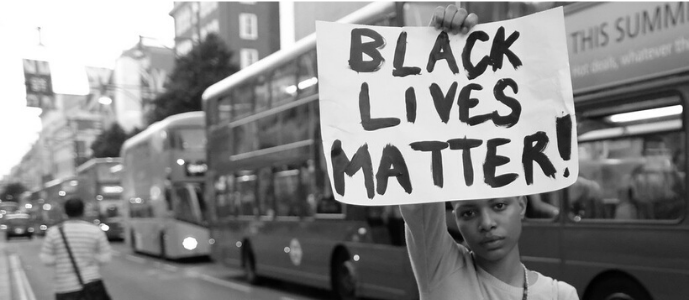 BLACK
LIVES
MATTER!
THIS SUMM
Hot deals, whatever th